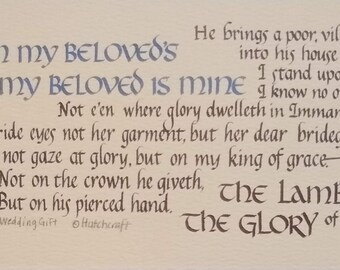 n my Beloved's
my Beloved is mine
He brings a poor, vil
into his house
I stand upo
I know no o
Not e'en where glory dwelleth in Imman
ride eyes not her garment, but her dear brideg
not gaze at glory, but on my king of grace—
Not on the crown he giveth,
But on his pierced hand.
The Lamb
The Glory of
Wedding Gift © Hutchcraft